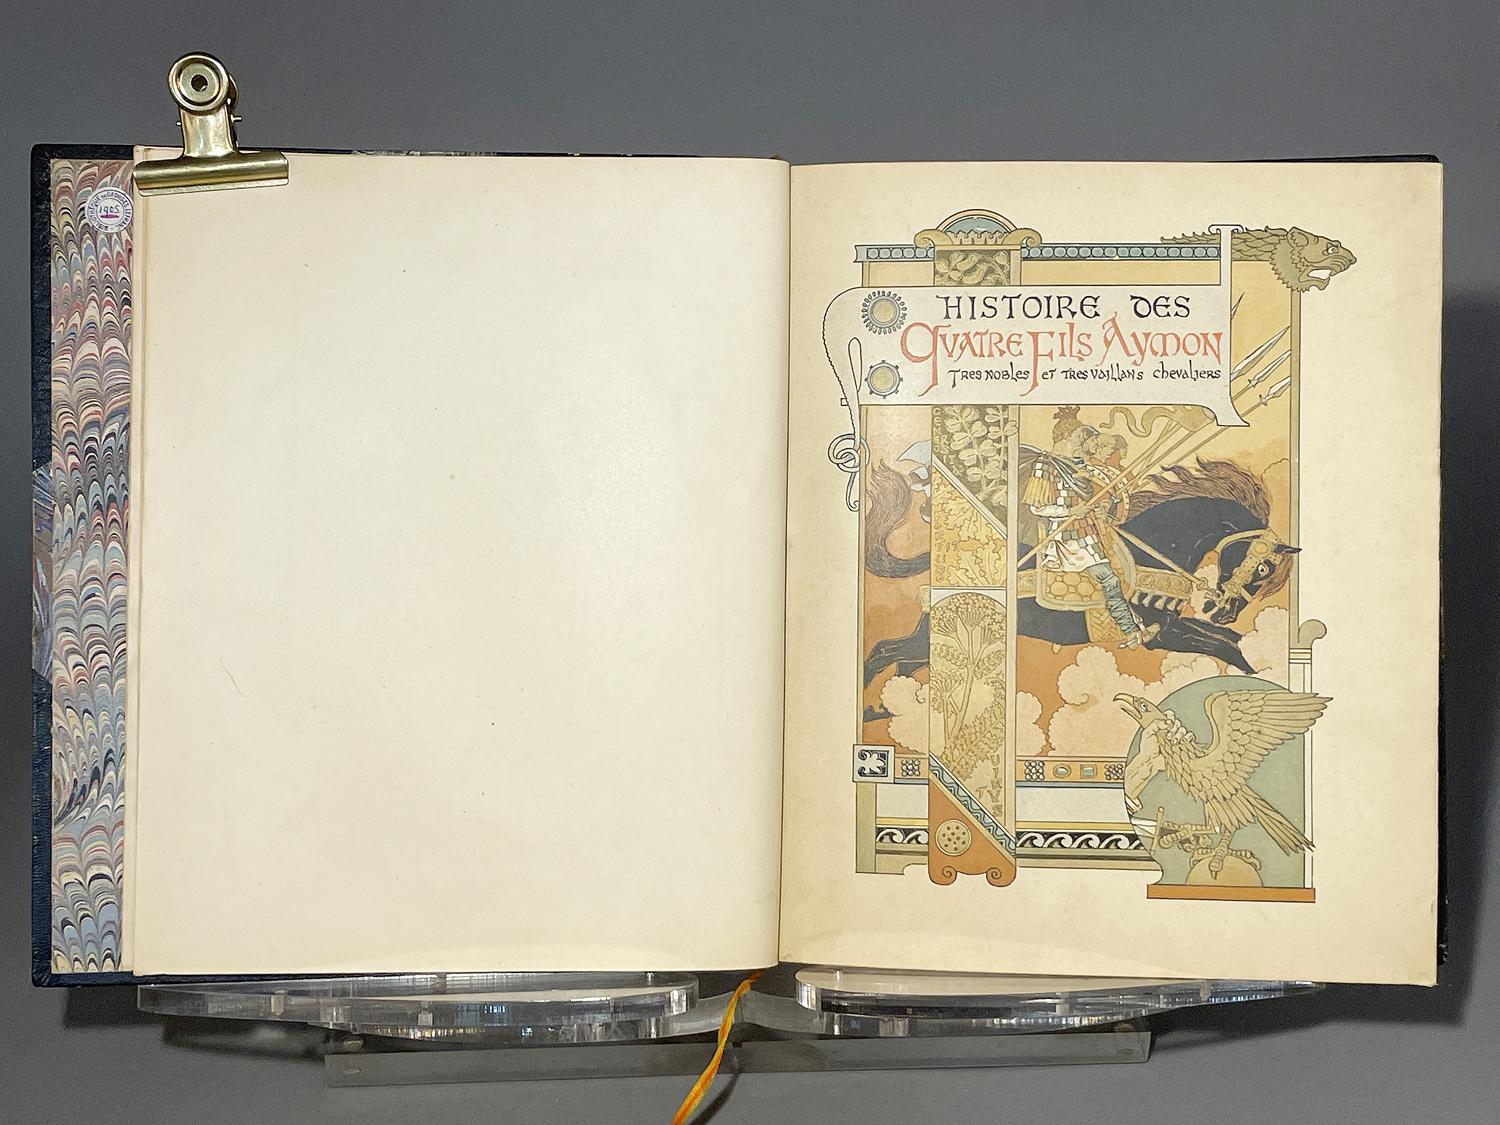 1905
HISTOIRE DES
QVATRE FILS AYMON
TRES NOBLES ET TRES VAILLANS CHEVALIERS